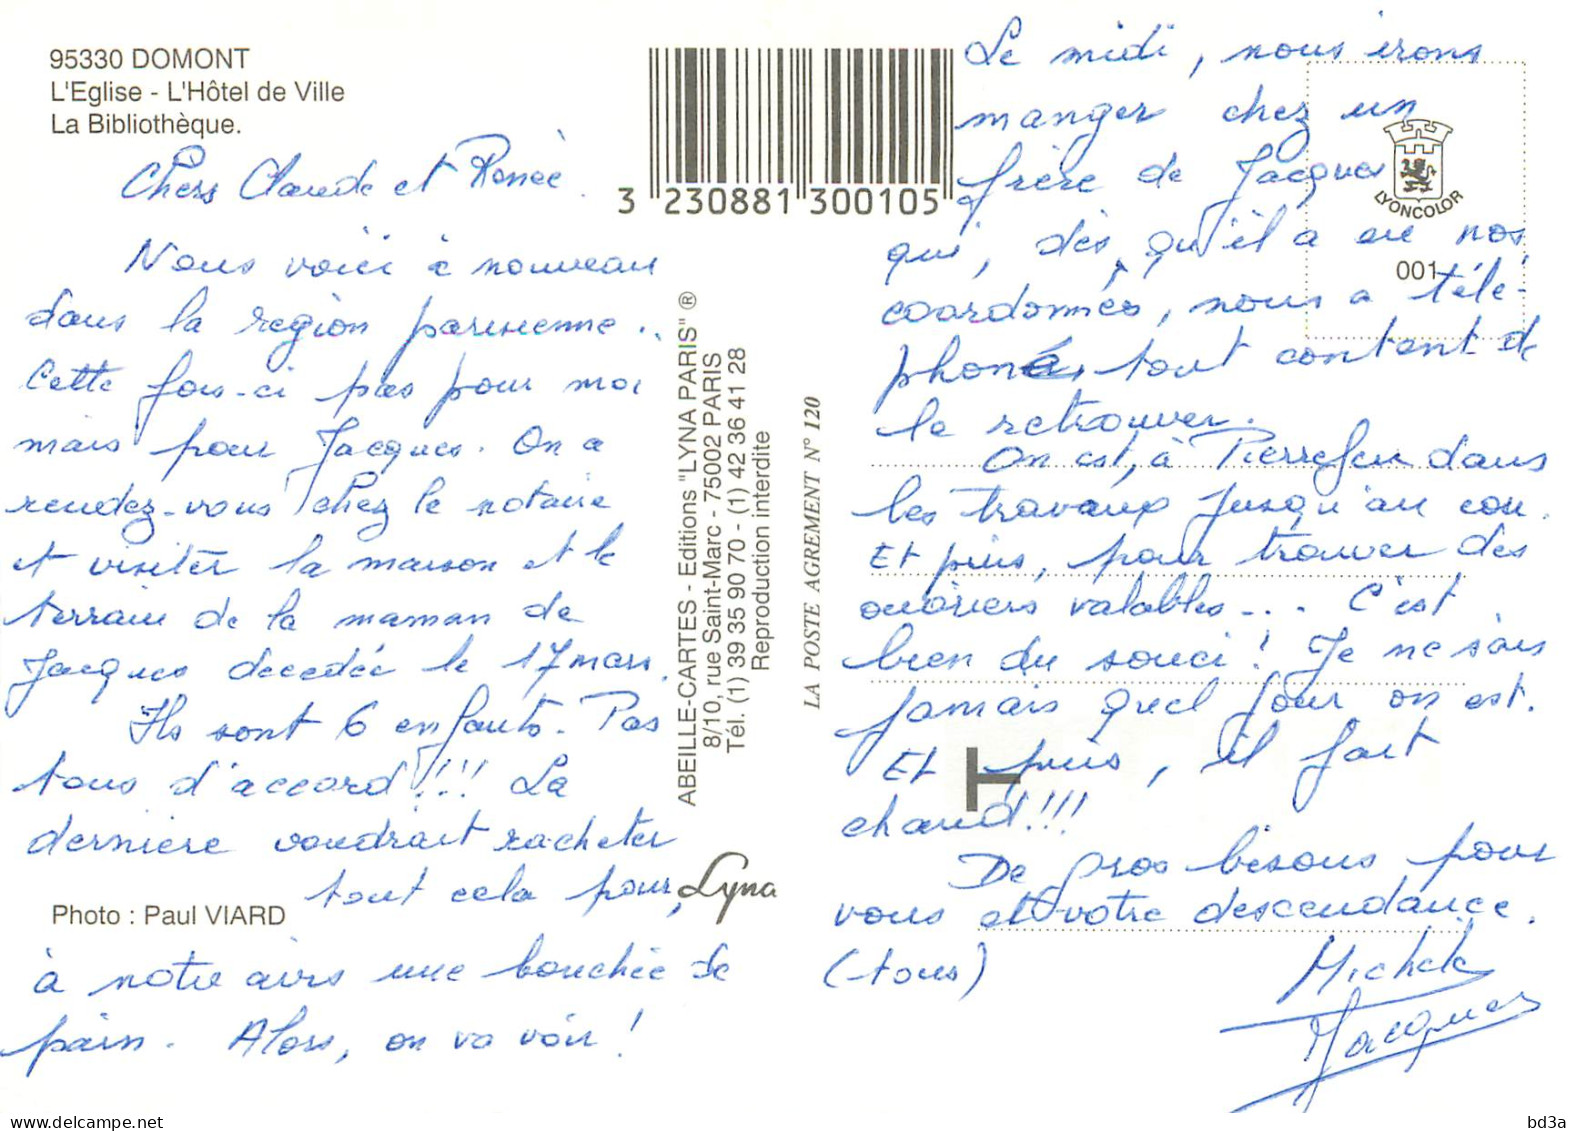 95330 DOMONT
L'Eglise - L'Hôtel de Ville
La Bibliothèque.
Chers Claude et Renée.
Nous voici à nouveau
dans la région parisienne..
Cette fois-ci pas pour moi
mais pour Jacques. On a
rendez-vous chez le notaire
et visiter la maison et le
terrain de la maman de
Jacques decedée le 17 mars.
Ils sont 6 enfants. Pas
tous d'accord!!! La
dernière voudrait racheter
tout cela pour,
Photo : Paul VIARD
à notre avis une bouchée de
pain. Alors, on va voir!
3 230881 300105
ABEILLE-CARTES - Editions "LYNA PARIS" ®
8/10, rue Saint-Marc - 75002 PARIS
Tél. (1) 39 35 90 70 - (1) 42 36 41 28
Reproduction interdite
Lyna
LA POSTE AGREMENT N° 120
LYONCOLOR
001
Le midi, nous irons
manger chez un
frère de Jacques
qui, dès qu'il a eu nos
coordonnées, nous a télé-
phoné, tout content de
le retrouver.
On est, à Pierrefeu dans
les travaux jusqu'au cou.
Et puis, pour trouver des
ouvriers valables... C'est
bien du souci! Je ne sais
jamais quel jour on est.
Et puis, il fait
chaud!!!
De gros bisous pour
vous et votre descendance.
(tous)
Michèle
Jacques
delcampe.net
bd3a